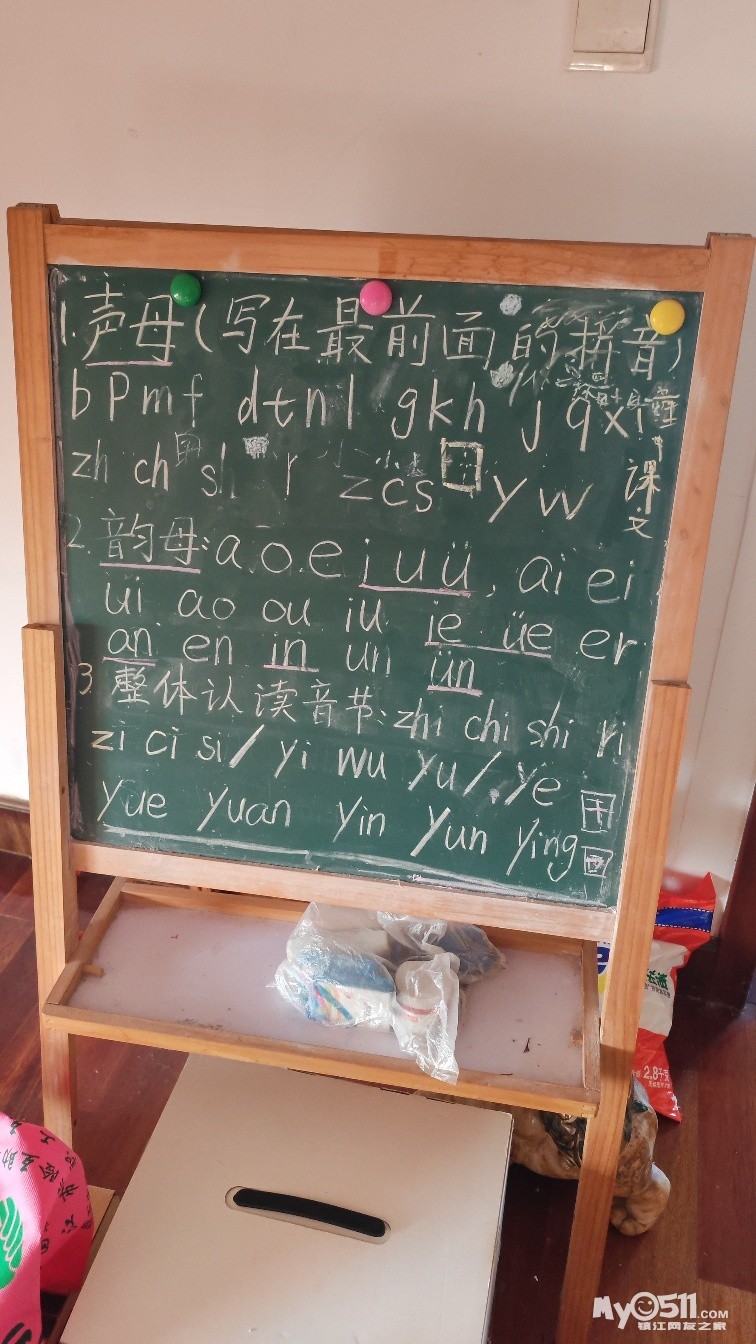 1.声母(写在最前面的拼音)
b p m f d t n l g k h j q x i
zh ch sh r z c s y w
课文
2.韵母:a o e i u ü, ai ei
ui ao ou iu ie üe er
an en in un ün
3 整体认读音节:zhi chi shi ri
zi ci si/yi wu yu/ye
yue yuan yin yun ying
2.8千克
My0511.COM
镇江网友之家